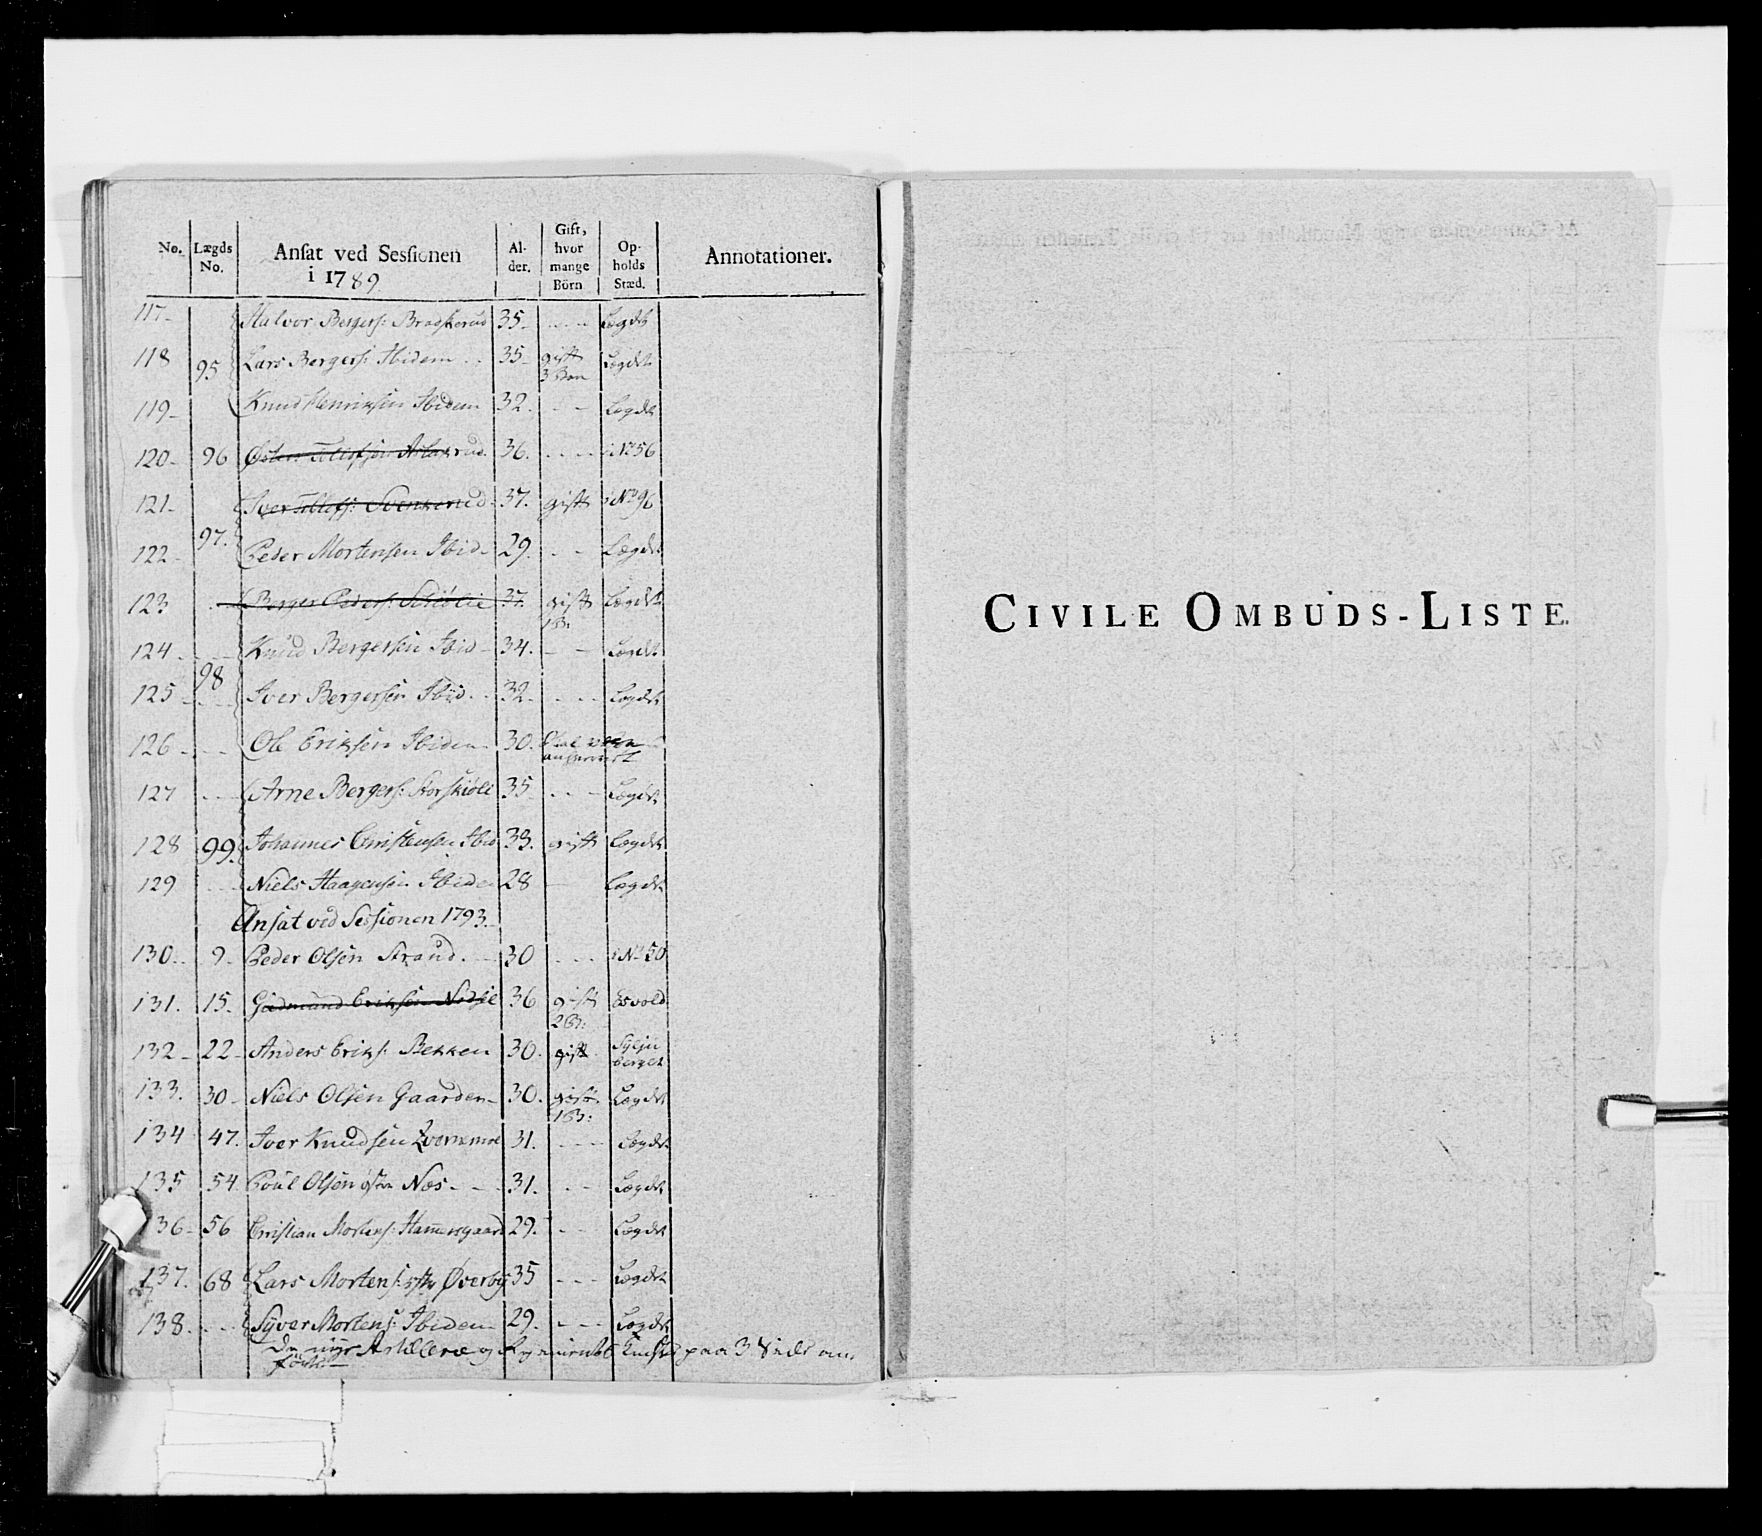 No. Lægds No. Ansat ved Sessionen i 1789. Al- der. Gift, hvor mange Börn Op- holds Stæd. Annotationer.
117- Halvor Bergers: Bradskerud 35- - - - Lægdet
118 95 Lars Bergers: Ibidem 35- gift 3 Børn Lægdet
119- Knud Henriksen Ibidem 32. - - Lægdet
120- 96 Østen 36. - - - i No 56
121- Iver 37. gift i No 96
122- 97. Peder Mortensen Ibid- 29. - - Lægdet
123 Berger Peders: 37. gift 1B: Lægdet
124- Knud Bergersen Ibid- 34. - - Lægdet
125- 98 Iver Bergersen Ibid. 32- - - - Lægdet
126- Ole Eriksen Ibidem 30. Skal være
127 Arne Bergers: Storskiøli 35 - - - Lægdet
128 99. Johannes Christensen Ibid 33. gift Lægdet
129 Niels Haagensen Ibidem 28 - Lægdet
Ansat ved Sessionen 1793.
130.- 9- Peder Olsen Strand. 30 - - - i No 50
131. 15. Gudmund Eriksen 36 gift 2B: Esvold
132- 22- Anders Eriks: Bekken 30. gift
133. 30- Niels Olsen Gaarden- 30. gift. 1B: Lægdet
134 47. Iver Knudsen 31. - - - Lægdet
135 54 Poul Olsen østre Næs- - 31. - - Lægdet
136- 56 Christian Mortens: Hammersgaard 29. - - Lægdet
137. 68 Lars Mortens: Øverby 35 - - - Lægdet
138. - - Syver Mortens: Ibidem 29. - - - Lægdet
paa 3 Side
CIVILE OMBUDS-LISTE.